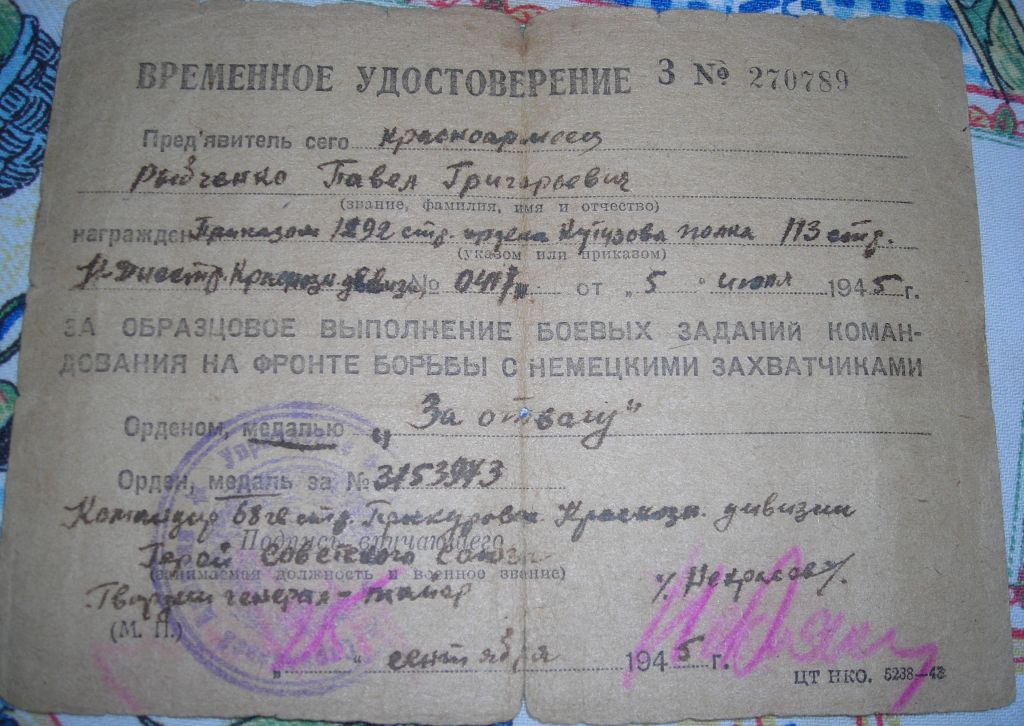 ВРЕМЕННОЕ УДОСТОВЕРЕНИЕ З № 270789
Пред'явитель сего красноармеец
Рыбченко Павел Григорьевич
(звание, фамилия, имя и отчество)
награжден Приказом 1292 стр. ордена Кутузова полка 113 стр.
(указом или приказом)
Н-Днестр. Краснозн. дивизи, № 04 от „5" июля 1945 г.
ЗА ОБРАЗЦОВОЕ ВЫПОЛНЕНИЕ БОЕВЫХ ЗАДАНИЙ КОМАН-
ДОВАНИЯ НА ФРОНТЕ БОРЬБЫ С НЕМЕЦКИМИ ЗАХВАТЧИКАМИ
Орденом, медалью „За отвагу"
Орден, медаль за № 3153943
Командир 68 гв стр. Краснозн. дивизии
Подпись вручающего
Герой Советского Союза
(занимаемая должность и военное звание)
Гвардии генерал-майор /Некрасов/.
(М. П.)
„ " сентября 1945 г.
ЦТ НКО. 5238—43